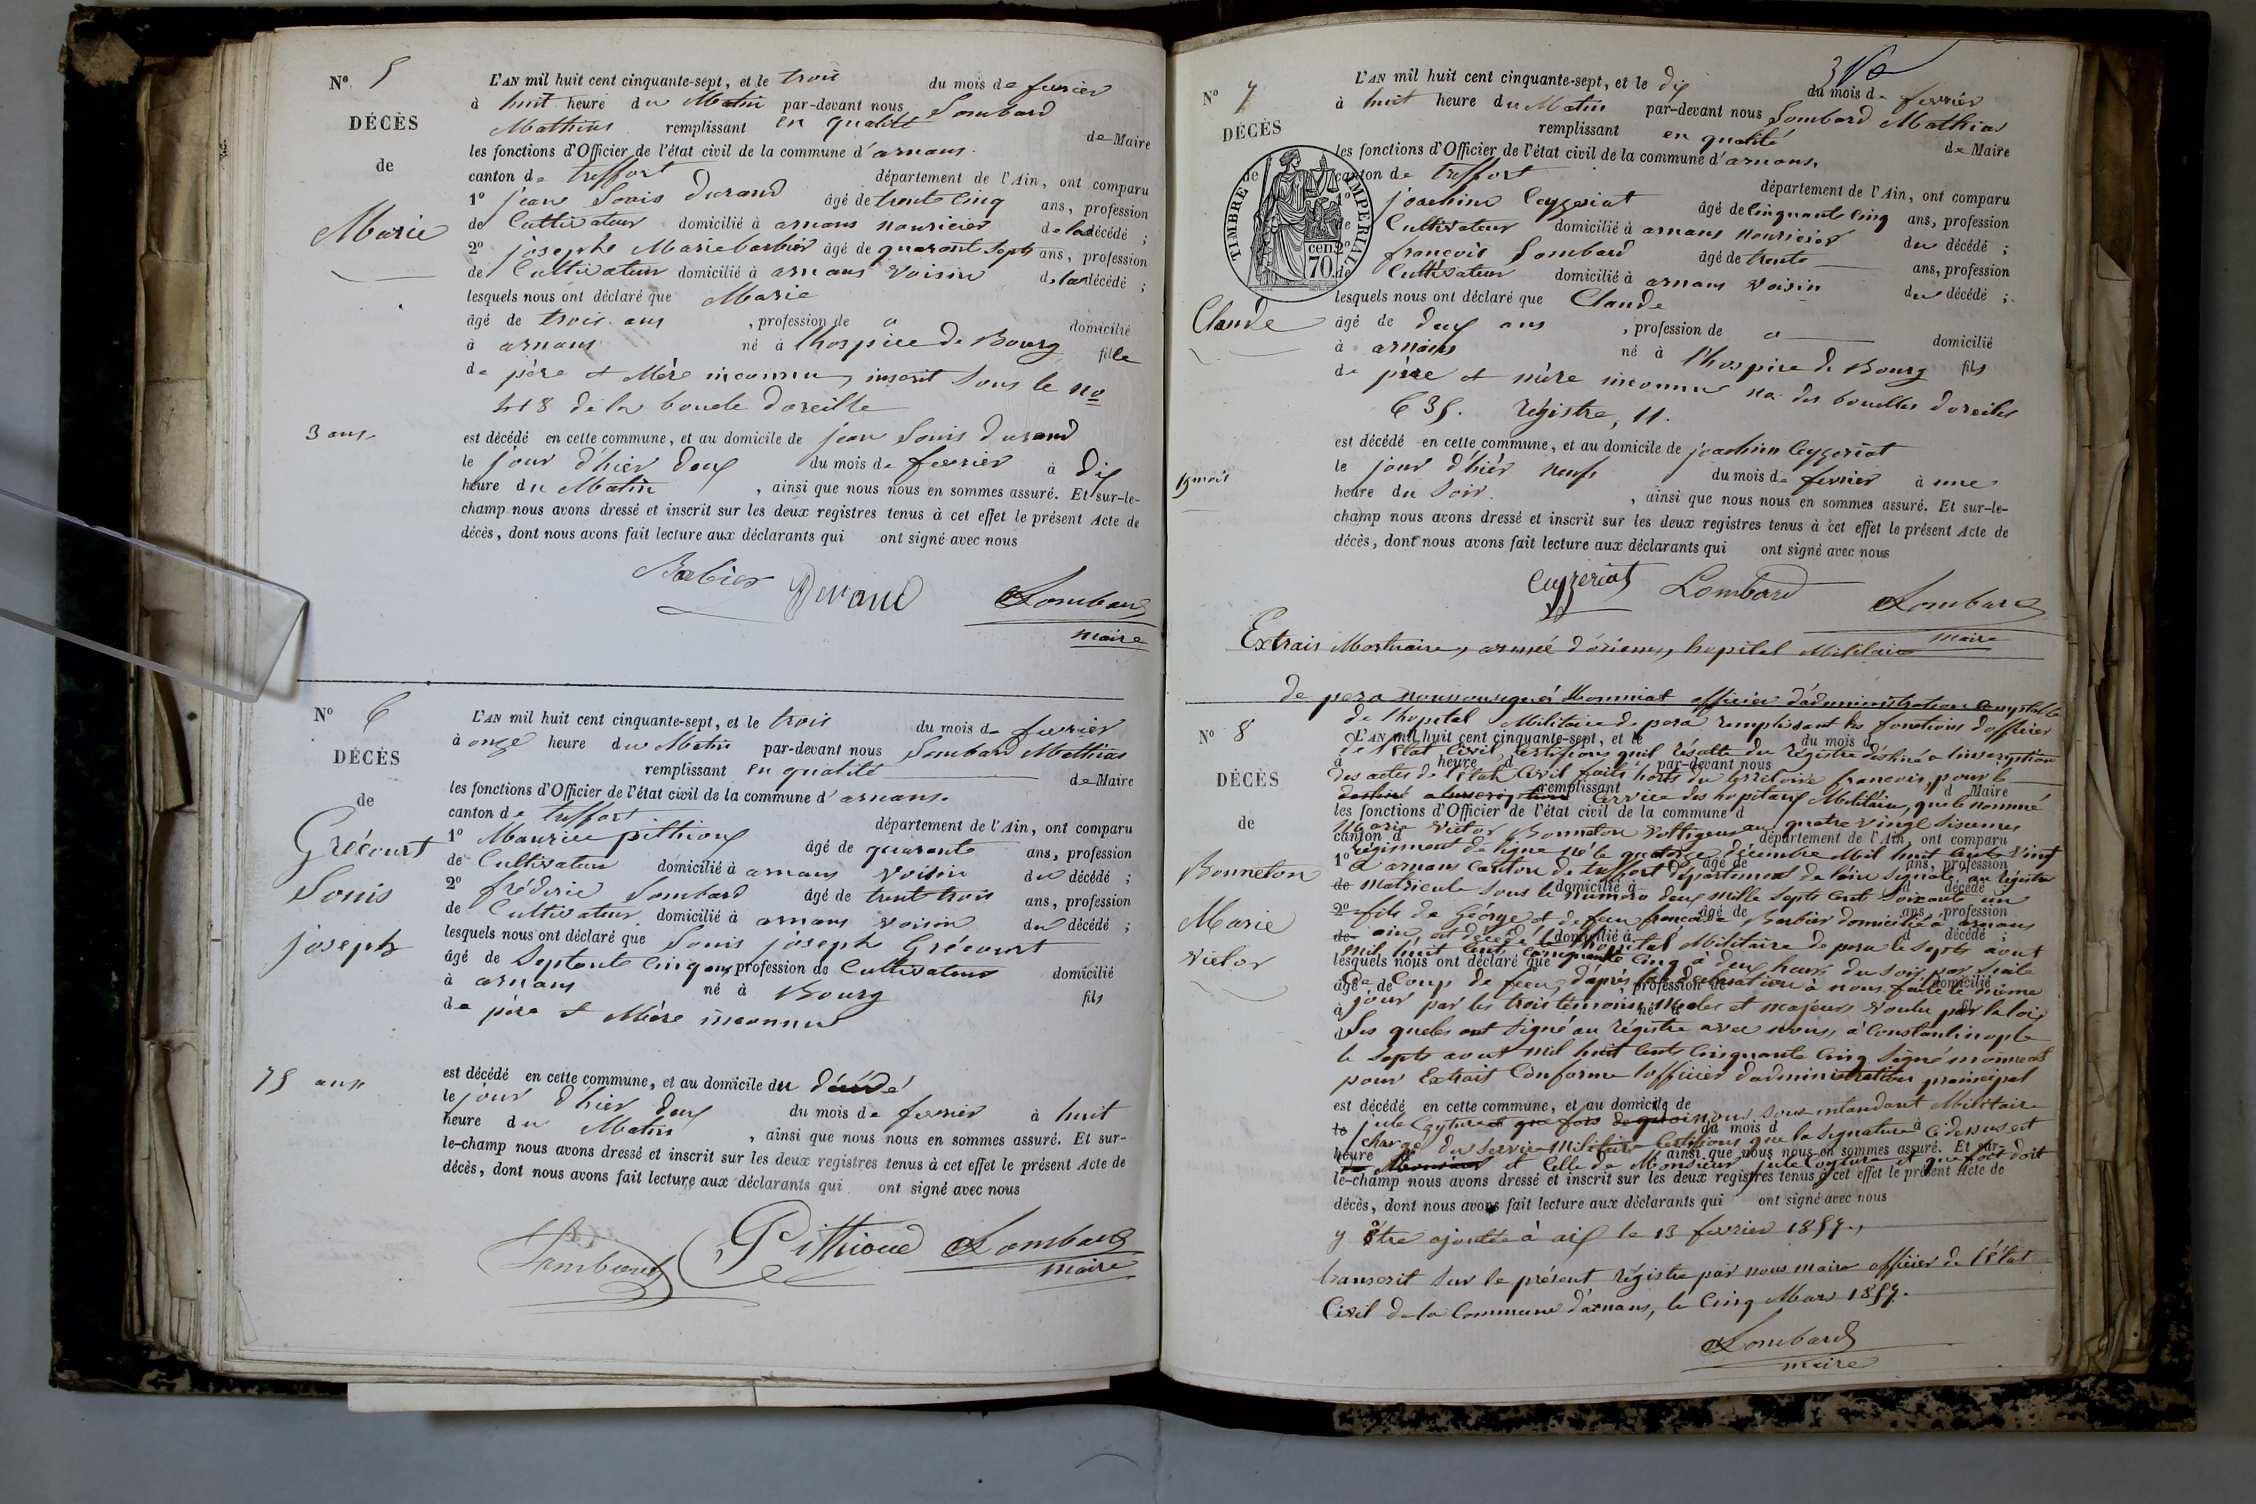 Nº 5
DÉCÈS
de
Marie
3 ans
L'AN mil huit cent cinquante-sept, et le trois du mois de fevrier
à huit heure du Matin par-devant nous Lombard
Mathias remplissant en qualité de Maire
les fonctions d'Officier de l'état civil de la commune d'arnans.
canton de treffort département de l'Ain, ont comparu
1º jean Louis Durand âgé de trente Cinq ans, profession
de Cultivateur domicilié à arnans nouricier de la décédé ;
2º josephe Marie barbier âgé de quarant septs ans, profession
de Cultivateur domicilié à arnans voisin de la décédé ;
lesquels nous ont déclaré que Marie
âgé de trois ans , profession de o domicilié
à arnans né à lhospice de Bourg fille
de père et Mère inconnu, inscrit sous le no
418 de la boucle doreille
est décédé en cette commune, et au domicile de jean Louis durand
le jour d'hier deux du mois de fevrier à dix
heure du Matin , ainsi que nous nous en sommes assuré. Et sur-le-
champ nous avons dressé et inscrit sur les deux registres tenus à cet effet le présent Acte de
décès, dont nous avons fait lecture aux déclarants qui ont signé avec nous
Babier Durand Lombard
maire
Nº 6
DÉCÈS
de
Grécourt
Louis
joseph
75 ans
L'AN mil huit cent cinquante-sept, et le trois du mois de fevrier
à onze heure du Matin par-devant nous Lombard Mathias
remplissant en qualité de Maire
les fonctions d'Officier de l'état civil de la commune d'arnans.
canton de treffort département de l'Ain, ont comparu
1º Maurice pithioux âgé de quarante ans, profession
de Cultivateur domicilié à arnans voisin du décédé ;
2º fréderic Lombard âgé de trent trois ans, profession
de Cultivateur domicilié à arnans voisin du décédé ;
lesquels nous ont déclaré que Louis joseph Grécourt
âgé de Septante Cinq ans profession de Cultivateur domicilié
à arnans né à Bourg fils
de père et Mère inconnu
est décédé en cette commune, et au domicile du décédé
le jour d'hier deux du mois de fevrier à huit
heure du Matin , ainsi que nous nous en sommes assuré. Et sur-
le-champ nous avons dressé et inscrit sur les deux registres tenus à cet effet le présent Acte de
décès, dont nous avons fait lecture aux déclarants qui ont signé avec nous
Lombard Pithioud Lombard
maire
Nº 7
DÉCÈS
de
TIMBRE IMPERIAL
70 cen.
Claude
15 mois
L'AN mil huit cent cinquante-sept, et le dix du mois de fevrier
à huit heure du Matin par-devant nous Lombard Mathias
remplissant en qualité de Maire
les fonctions d'Officier de l'état civil de la commune d'arnans.
canton de treffort département de l'Ain, ont comparu
1º joachim Ceyzeriat âgé de Cinquante Cinq ans, profession
de Cultivateur domicilié à arnans nouricier du décédé ;
2º francois Lombard âgé de trente ans, profession
de Cultivateur domicilié à arnans voisin du décédé ;
lesquels nous ont déclaré que Claude
âgé de deux ans , profession de o domicilié
à arnans né à l'hospice de Bourg fils
de père et mère inconnu no. des bouelles doreiles
635. régistre, 11.
est décédé en cette commune, et au domicile de joachim Ceyzeriat
le jour d'hier neuf du mois de fevrier à une
heure du soir. , ainsi que nous nous en sommes assuré. Et sur-le-
champ nous avons dressé et inscrit sur les deux registres tenus à cet effet le présent Acte de
décès, dont nous avons fait lecture aux déclarants qui ont signé avec nous
Ceyzeriat Lombard Lombard
maire
Extrais Mortuaire, armée d'orient, hopital Militaire
de pera nous soussigné Monniat officier d'administration Comptable
Nº 8
DÉCÈS
de
Bonneton
Marie
victor
de lhopital Militaire de pera remplissant les fonctions dofficier
L'AN mil huit cent cinquante-sept, et le du mois d
de l'état Civil Certifions quil résulte du régistre destiné a linscription
à heure d par-devant nous
des actes de l'état Civil faits hors du territoire francois, pour le
remplissant d Maire
service des hopitaux Militaire, que le nommé
les fonctions d'Officier de l'état civil de la commune d
Marie victor Bonneton voltigeur au quatre vingt sixiemes
canton d département de l'Ain, ont comparu
régiment de ligne né le quatorze décembre Mil huit cent vint
1º âgé de ans, profession
à arnans Canton de treffort département de lain signalé au régistre
de domicilié à d décédé
matricule sous le numéro deux mille septs cent soixante un
2º âgé de ans, profession
fils de Géorge et de feu francoise Barbier domicilié à arnans
de domicilié à d décédé ;
ain, est décédé à lhopital Militaire de pera le septs aout
lesquels nous ont déclaré que
mil huit cent cinquante Cinq à deux heures du soir par suite
âgé de profession de domicilié
de Coup de feu, d'après la déclaration à nous faite le même
à né à fil
jour par les trois témoins Males et majeurs voulu par la loi
d
Les quels ont signé au régistre avec nous, à Constantinople
le septs aout mil huit cents Cinquante Cinq signé monniat
pour Extrait Conforme lofficier dadministration prinicipal
est décédé en cette commune, et au domicile de
nous sous intendant Militaire
le du mois d à
chargé du service Militaire Certifions que la signature Ci desus est
heure , ainsi que nous nous en sommes assuré. Et sur-
et Celle de Monsieur et que foit doit
le-champ nous avons dressé et inscrit sur les deux registres tenus à cet effet le présent Acte de
décès, dont nous avons fait lecture aux déclarants qui ont signé avec nous
y être ajoutée à aix le 13 fevrier 1857.,
transcrit sur le présent régistre par nous maire officier de l'état
Civil de la Commune d'arnans, le Cinq Mars 1857.
Lombard
maire